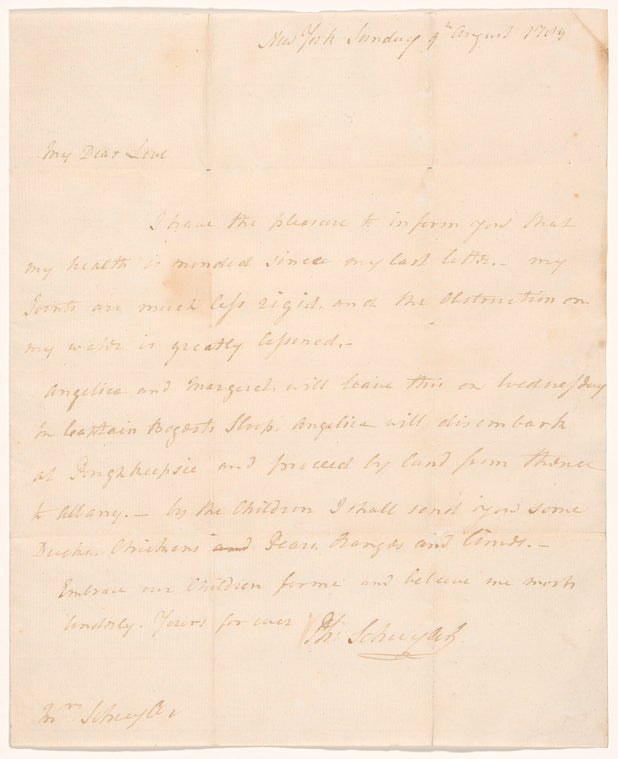 New York Sunday 9th August 1789
My Dear Love
I have the pleasure to inform you that
my health is mended since my last letter. – my
Joints are much less rigid, and the Obstruction on
my water is greatly lessened. –
Angelica and Margaret will leave this on Wednesday
in Captain Bogerts Sloop. Angelica will disembark
at Poughkeepsie and proceed by land from thence
to Albany. – by the Children I shall send you some
Ducks, Chickens and Pears, Oranges and Limes. –
Embrace our Children for me and believe me most
tenderly. Yours for ever Ph: Schuyler
Mrs Schuyler